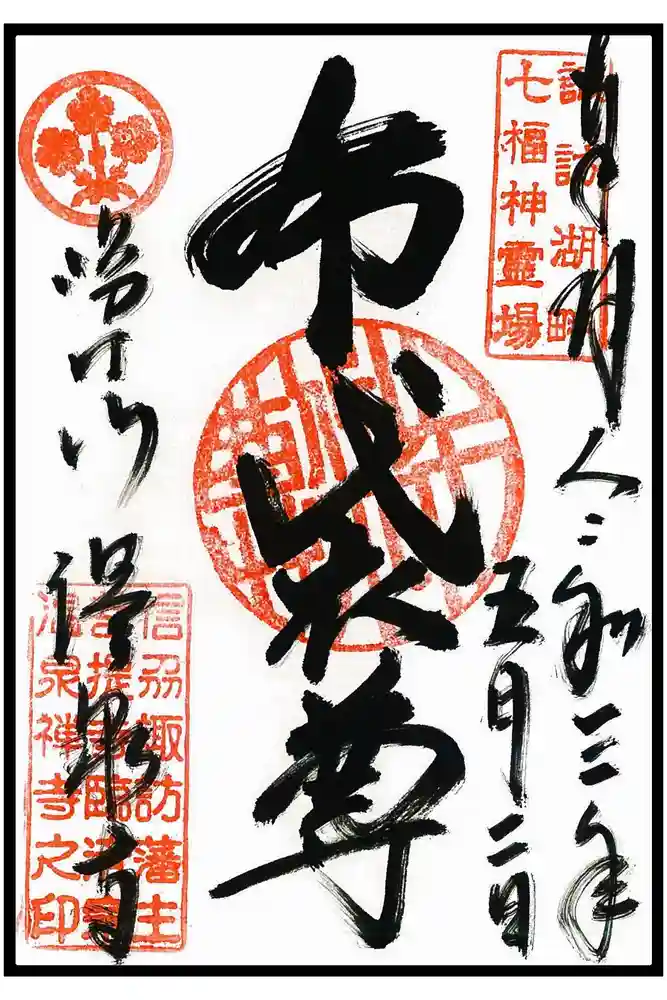 諏訪湖畔
七福神霊場
令和三年
五月二日
布袋尊
臨江山 温泉寺
信刕諏訪藩主
菩提寺臨済宗
温泉禅寺之印